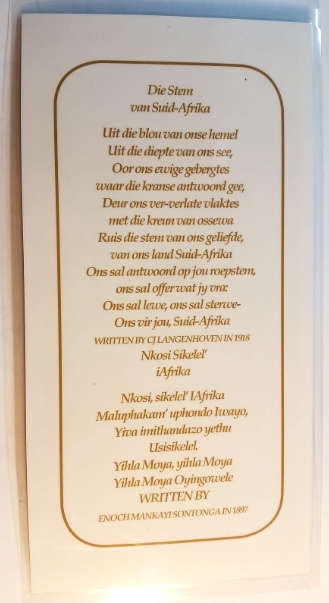 Die Stem
van Suid-Afrika
Uit die blou van onse hemel
Uit die diepte van ons see,
Oor ons ewige gebergtes
waar die kranse antwoord gee,
Deur ons ver-verlate vlaktes
met die kreun van ossewa
Ruis die stem van ons geliefde,
van ons land Suid-Afrika
Ons sal antwoord op jou roepstem,
ons sal offer wat jy vra:
Ons sal lewe, ons sal sterwe-
Ons vir jou, Suid-Afrika
WRITTEN BY CJ LANGENHOVEN IN 1918
Nkosi Sikelel'
iAfrika
Nkosi, sikelel' IAfrika
Maluphakam' uphondo Iwayo,
Yiva imithandazo yethu
Usisikelel.
Yihla Moya, yihla Moya
Yihla Moya Oyingcwele
WRITTEN BY
ENOCH MANKAYI SONTONGA IN 1897